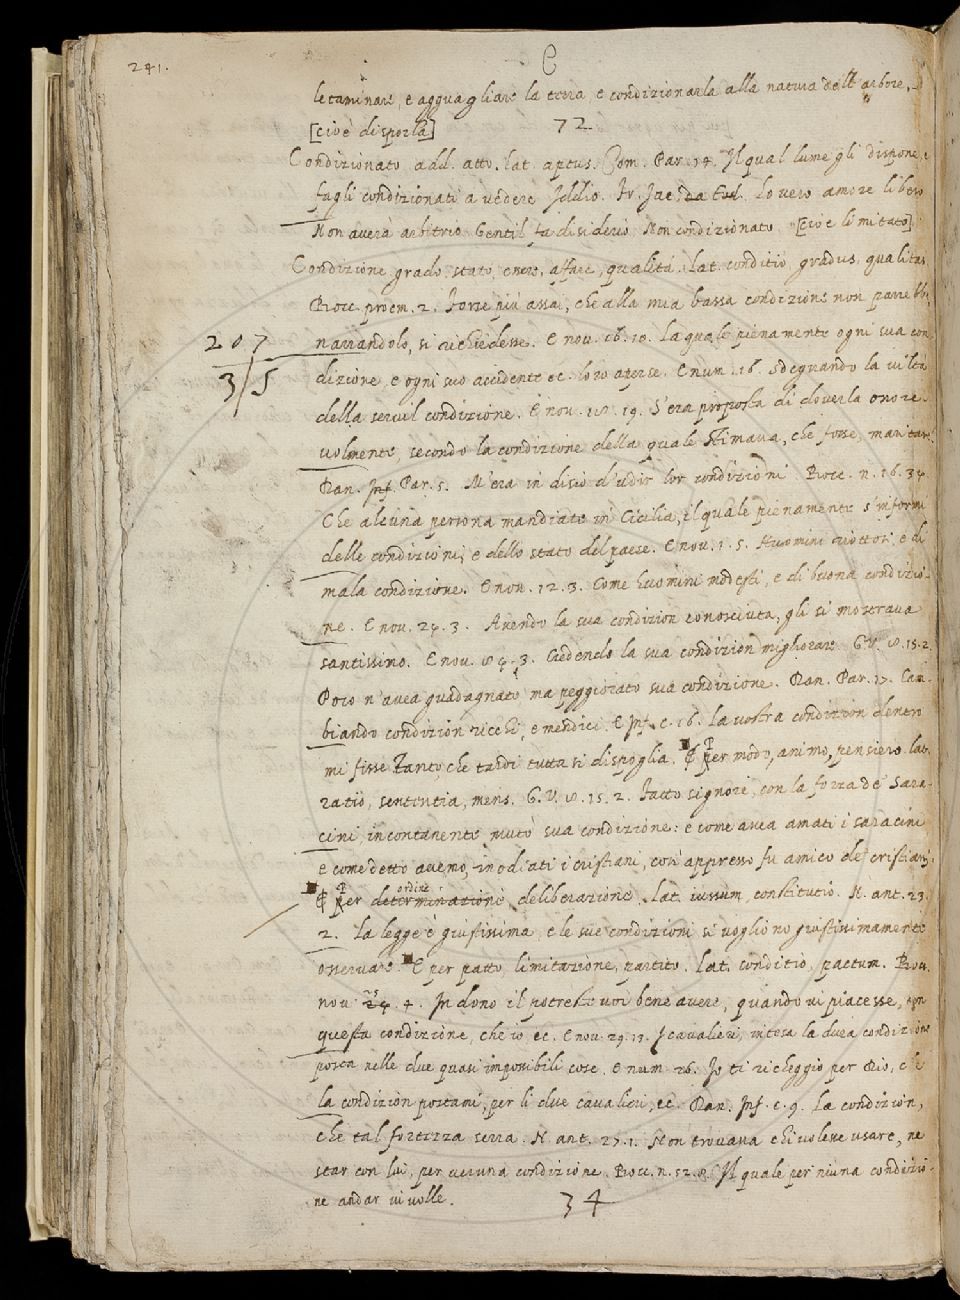 241.
C
letaminare, e agguagliare la terra, e condizionarla alla natura dell' arbore,
[cioè disporla]
72
Condizionato add. atto. lat. aptus. Com. Par. 14. Il qual lume gli dispone, e
fagli condizionati a vedere Iddio. Fr. Iac. da Tod. Lo vero amore libero
Non averà arbitrio Gentil fa disiderio Non condizionato [cioè limitato]
Condizione, grado, stato, essere, affare, qualità. Lat. conditio, gradus, qualitas
Bocc. proem. 2. Forse più assai, che alla mia bassa condizione non parrebbe,
narrandolo, si richiedesse. E nov. 16. 10. La quale pienamente ogni sua con
207
3/5
dizione, e ogni suo accidente ec. loro aperse. E num. 16. Sdegnando la viltà
della servil condizione. E nov. 18. 19. S'era proposta di doverla onore-
volmente, secondo la condizione della quale stimava, che fosse, maritare
Dan. Par. 5. M'era in disio d'udir lor condizioni Bocc. n. 16. 34
Che alcuna persona mandiate in Cicilia, il quale pienamente s'informi
delle condizioni, e dello stato del paese. E nov. 1. 5. Huomini riottosi, e di
mala condizione. E nov. 12. 3. Come huomini modesti, e di buona condizio-
ne. E nov. 24. 3. Avendo la sua condizion conosciuta, gli si mostrava
santissimo. E nov. 84. 3. Credendo la sua condizion migliorare G.V. 8. 15. 2
Poco n'avea guadagnato, ma peggiorato sua condizione. Dan. Par. 17. Cam
biando condizion ricchi, e mendici. E Inf. c. 16. La vostra condizion dentro
mi fisse Tanto, che tardi tutta si dispoglia. ¶ Per modo, animo, pensiero. lat.
ratio, sententia, mens. G.V. 8. 15. 2. Fatto signore, con la forza de' Sara-
cini, incontanente mutò sua condizione: e come avea amati i saracini
e come detto avemo, inodiati i cristiani, così appresso fu amico de' cristiani.
ordine
¶ Per determinazione deliberazione. Lat. iussum, constitutio. N. ant. 23.
2. La legge è giustissima, e le sue condizioni si vogliono giustissimamente
osservare. E per patto, limitazione, partito. Lat. conditio, pactum. Bocc.
nov. 24. 4. In dono il potreste voi bene avere, quando vi piacesse, con
questa condizione, che io ec. E nov. 29. 13. I cavalieri, intesa la dura condizione
posta nelle due quasi impossibili cose. E num. 26. Io ti richeggio per Dio, che
la condizion postami, per li due cavalieri, ec. Dan. Inf. c. 9. La condizion,
che tal fortezza serra. N. ant. 25. 1. Non trovava chi volesse usare, ne
star con lui, per veruna condizione. Bocc. n. 52. 8. Il quale per niuna condizio-
ne andar vi volle.
34